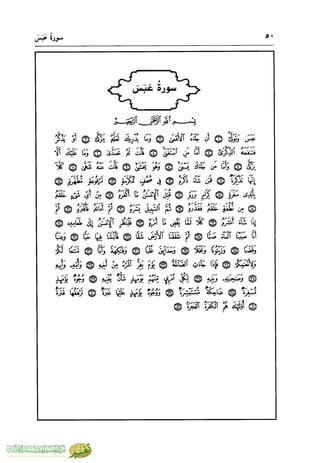 ٥٠
سورة عَبَسَ
سورة عَبَسَ
بِسْمِ اللَّهِ الرَّحْمَٰنِ الرَّحِيمِ
عَبَسَ وَتَوَلَّىٰ ١ أَن جَاءَهُ الْأَعْمَىٰ ٢ وَمَا يُدْرِيكَ لَعَلَّهُ يَزَّكَّىٰ ٣ أَوْ يَذَّكَّرُ
فَتَنفَعَهُ الذِّكْرَىٰ ٤ أَمَّا مَنِ اسْتَغْنَىٰ ٥ فَأَنتَ لَهُ تَصَدَّىٰ ٦ وَمَا عَلَيْكَ أَلَّا
يَزَّكَّىٰ ٧ وَأَمَّا مَن جَاءَكَ يَسْعَىٰ ٨ وَهُوَ يَخْشَىٰ ٩ فَأَنتَ عَنْهُ تَلَهَّىٰ ١٠ كَلَّا
إِنَّهَا تَذْكِرَةٌ ١١ فَمَن شَاءَ ذَكَرَهُ ١٢ فِي صُحُفٍ مُّكَرَّمَةٍ ١٣ مَّرْفُوعَةٍ مُّطَهَّرَةٍ ١٤
بِأَيْدِي سَفَرَةٍ ١٥ كِرَامٍ بَرَرَةٍ ١٦ قُتِلَ الْإِنسَانُ مَا أَكْفَرَهُ ١٧ مِنْ أَيِّ شَيْءٍ خَلَقَهُ
١٨ مِن نُّطْفَةٍ خَلَقَهُ فَقَدَّرَهُ ١٩ ثُمَّ السَّبِيلَ يَسَّرَهُ ٢٠ ثُمَّ أَمَاتَهُ فَأَقْبَرَهُ ٢١ ثُمَّ
إِذَا شَاءَ أَنشَرَهُ ٢٢ كَلَّا لَمَّا يَقْضِ مَا أَمَرَهُ ٢٣ فَلْيَنظُرِ الْإِنسَانُ إِلَىٰ طَعَامِهِ ٢٤
أَنَّا صَبَبْنَا الْمَاءَ صَبًّا ٢٥ ثُمَّ شَقَقْنَا الْأَرْضَ شَقًّا ٢٦ فَأَنبَتْنَا فِيهَا حَبًّا ٢٧ وَعِنَبًا
وَقَضْبًا ٢٨ وَزَيْتُونًا وَنَخْلًا ٢٩ وَحَدَائِقَ غُلْبًا ٣٠ وَفَاكِهَةً وَأَبًّا ٣١ مَّتَاعًا لَّكُمْ
وَلِأَنْعَامِكُمْ ٣٢ فَإِذَا جَاءَتِ الصَّاخَّةُ ٣٣ يَوْمَ يَفِرُّ الْمَرْءُ مِنْ أَخِيهِ ٣٤ وَأُمِّهِ وَأَبِيهِ
٣٥ وَصَاحِبَتِهِ وَبَنِيهِ ٣٦ لِكُلِّ امْرِئٍ مِّنْهُمْ يَوْمَئِذٍ شَأْنٌ يُغْنِيهِ ٣٧ وُجُوهٌ يَوْمَئِذٍ
مُّسْفِرَةٌ ٣٨ ضَاحِكَةٌ مُّسْتَبْشِرَةٌ ٣٩ وَوُجُوهٌ يَوْمَئِذٍ عَلَيْهَا غَبَرَةٌ ٤٠ تَرْهَقُهَا قَتَرَةٌ
٤١ أُولَٰئِكَ هُمُ الْكَفَرَةُ الْفَجَرَةُ ٤٢